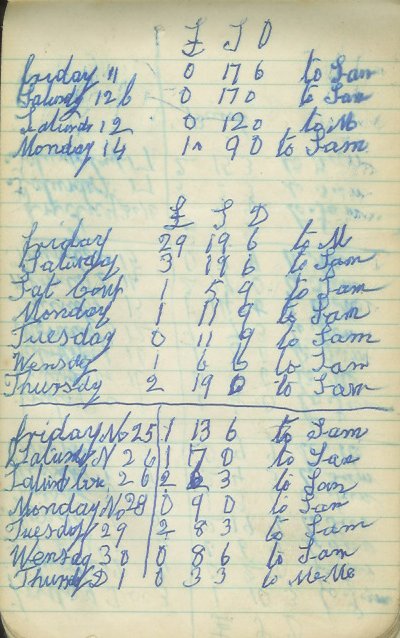 £ S D
friday 11 0 17 6 to Sam
Saturday 12 6 0 17 0 to Sam
Saturda 12 0 12 0 to M
Monday 14 1 9 0 to Sam
£ S D
friday 29 19 6 to M
Saturday 3 19 6 to Sam
Sat 1 5 9 to Sam
Monday 1 11 9 to Sam
Tuesday 0 11 9 to Sam
Wensday 1 6 6 to Sam
Thursday 2 19 0 to Sam
friday No 25 1 13 6 to Sam
Saturday N 26 1 7 0 to Sam
Saturd 26 2 3 to Sam
Monday No 28 0 9 0 to Sam
Tuesday 29 2 8 3 to Sam
Wensday 30 0 8 6 to Sam
Thursday D 1 0 3 3 to